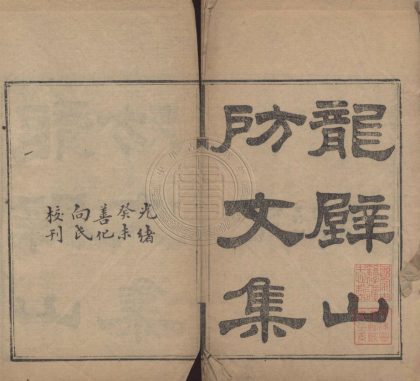 龍壁山
房文集
光緒
癸未
善化
向氏
校刊